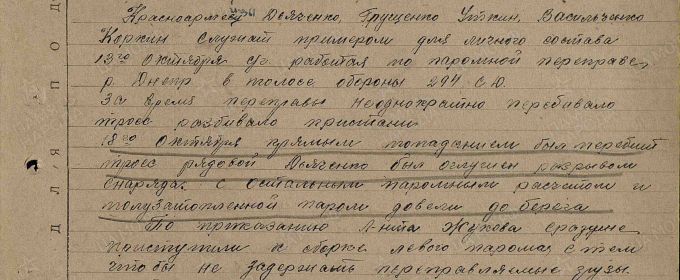 Красноармейцы Дьяченко, Грущенко Уткин, Васильченко
Коркин служат примером для личного состава
13го октября с/г работая по паромной переправе,
р. Днепр в полосе обороны 294 С.Д.
За время переправы неоднократно перебивало
трос разбивало пристани
18го октября прямым попаданием был перебит
трос рядовой Дьяченко был оглушен разрывом
снаряда. с остальным паромным расчетом и
полузатопленной паром довели до берега
По приказанию л-нта Жукова сразу же
приступили к сборке левого парома с тем
что бы не задержать переправляемые грузы
Д Л Я П О Д